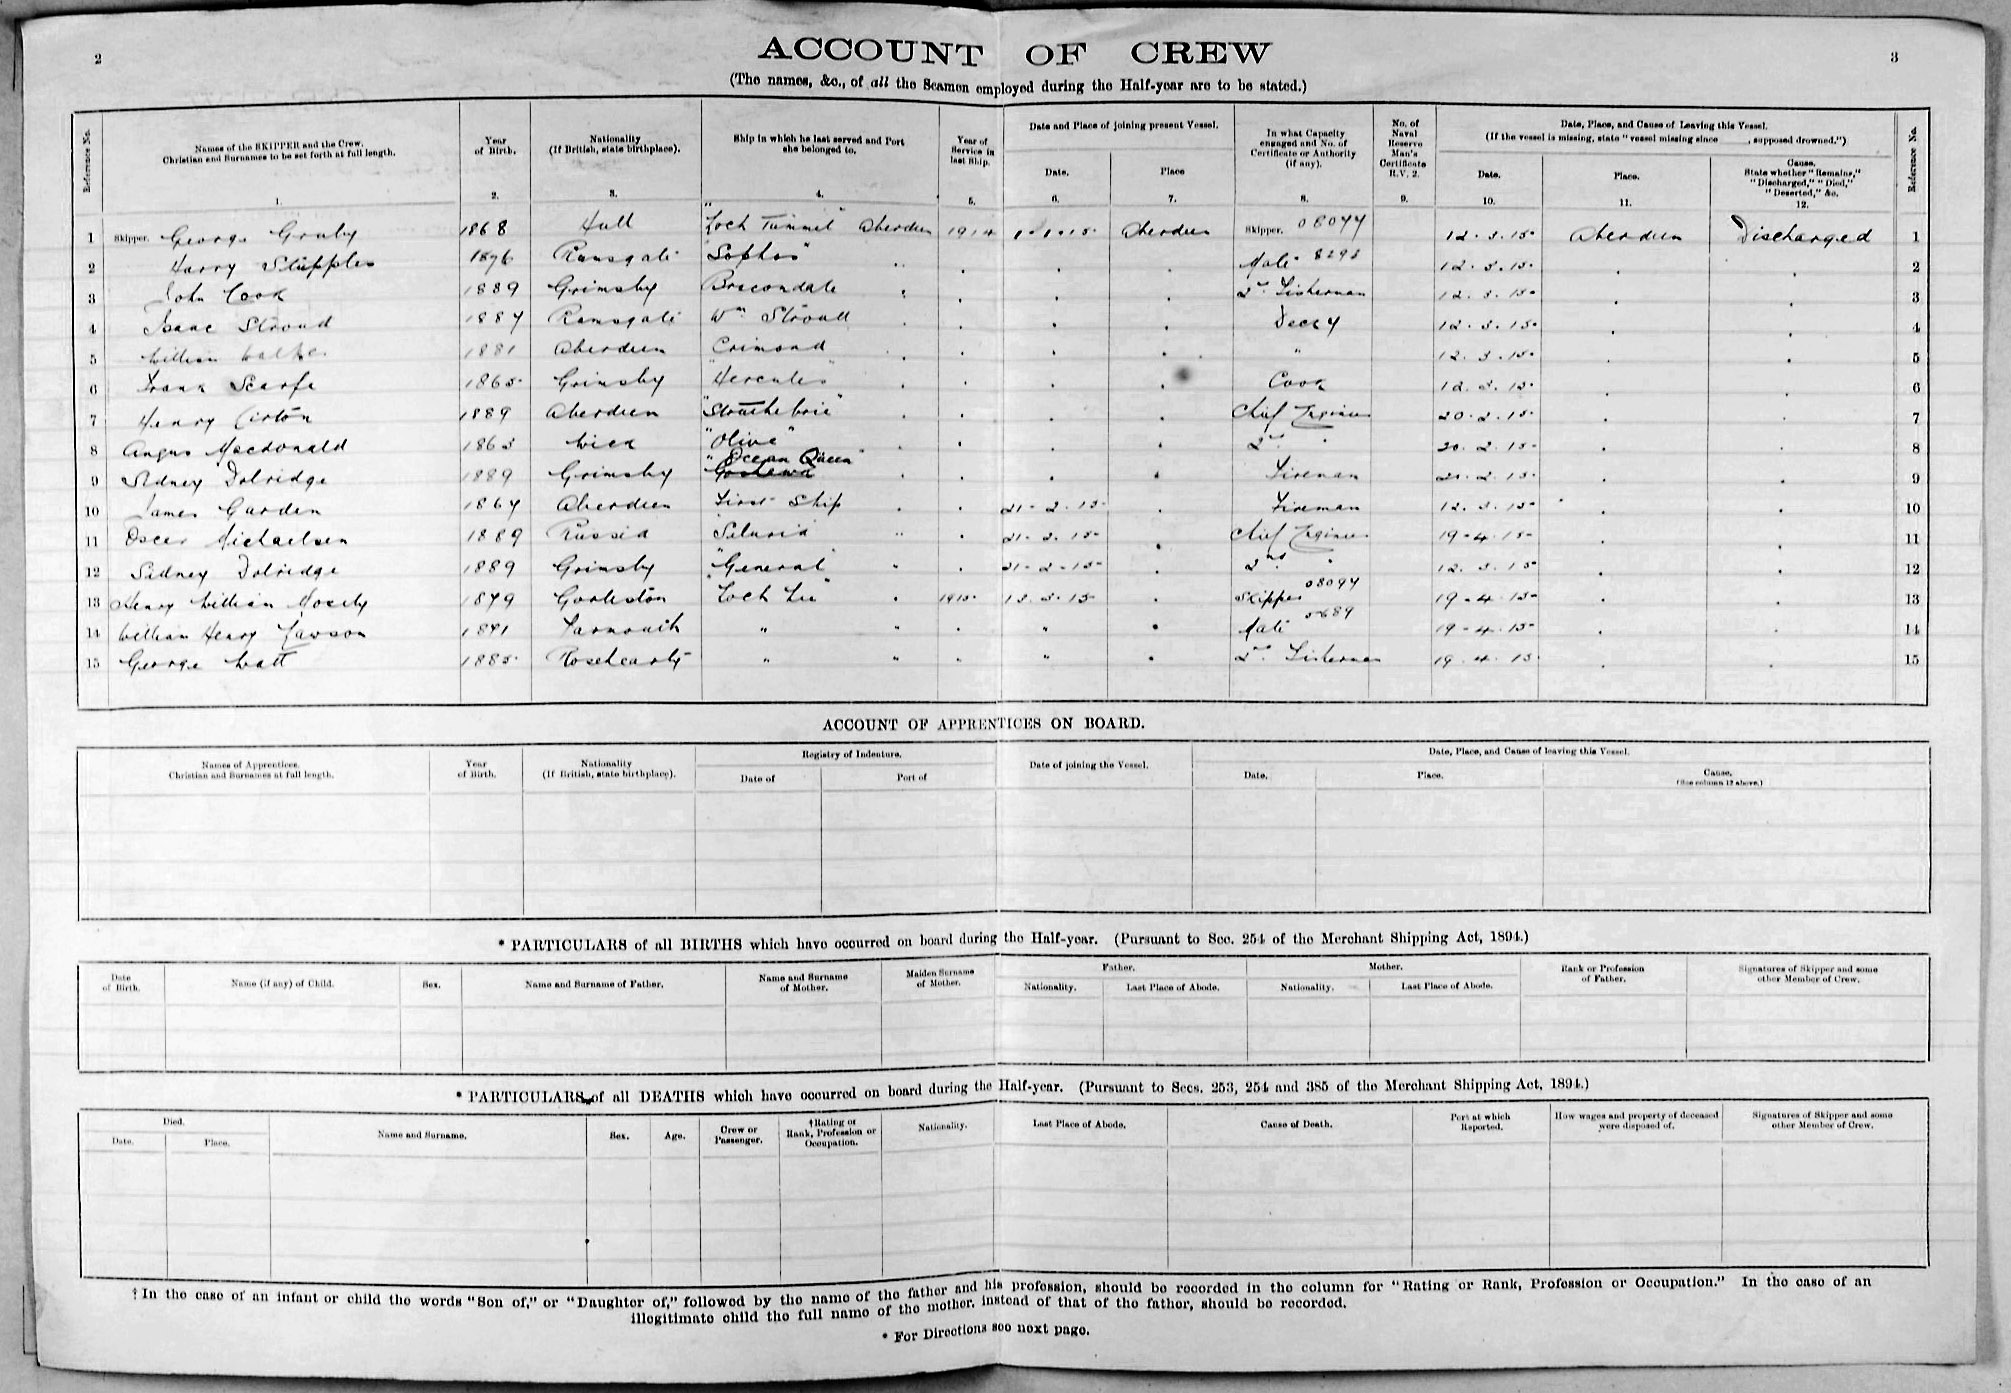 2
ACCOUNT OF CREW
3
(The names, &c., of all the Seamen employed during the Half-year are to be stated.)
Reference No.
Names of the SKIPPER and the Crew.
Christian and Surnames to be set forth at full length.
1.
Year of Birth.
2.
Nationality
(If British, state birthplace).
3.
Ship in which he last served and Port
she belonged to.
4.
Year of
Service in
last Ship.
5.
Date and Place of joining present Vessel.
Date.
6.
Place
7.
In what Capacity
engaged and No. of
Certificate or Authority
(if any).
8.
No. of
Naval
Reserve
Man's
Certificate
R.V. 2.
9.
Date, Place, and Cause of Leaving this Vessel.
(If the vessel is missing, state "vessel missing since ____, supposed drowned.")
Date.
10.
Place.
11.
Cause.
State whether "Remains,"
"Discharged," "Died,"
"Deserted," &c.
12.
Reference No.
1 Skipper. George 1868 Hull "Loch Tummel" Aberdeen 1914 1.1.15 Aberdeen Skipper. 08044 12.3.15 Aberdeen Discharged 1
2 Harry Stupples 1876 Ramsgate "Sophos" " . . . Mate 8293 12.3.15 . . 2
3 John Cook 1889 Grimsby Bracondale " . . . 2nd Fisherman 12.3.15 . . 3
4 Isaac Stroud 1887 Ramsgate Wm Stroud . . . . Decky 12.3.15 . . 4
5 William Walker 1881 Aberdeen Crimond . . . . " 12.3.15 . . 5
6 Frank Scarfe 1865 Grimsby "Hercules" . . . . Cook 12.3.15 . . 6
7 Henry Cirton 1889 Aberdeen "Strathebrie" . . . . Chief Engineer 20.2.15 . . 7
8 Angus Macdonald 1863 Wick "Olive" . . . . 2nd " 20.2.15 . . 8
9 Sidney Dolridge 1889 Grimsby "Ocean Queen" . . . . Fireman 21.2.15 . . 9
10 James Garden 1867 Aberdeen First Ship . . 21-2.15 . Fireman 12.3.15 . . 10
11 Oscar Michaelsen 1889 Russia "Siluria" " . 21-2.15 . Chief Engineer 19-4.15 . . 11
12 Sidney Dolridge 1889 Grimsby "General" " . 21-2-15 . 2nd " 12.3.15 . . 12
13 Henry William Mosely 1879 Gorleston "Loch Lee" . 1915 13.3.15 . Skipper 08094 19-4.15 . . 13
14 William Henry Lawson 1871 Yarmouth " " . " . Mate 5689 19-4.15 . . 14
15 George Watt 1885 Rosehearty " " . " . 2nd Fisherman 19.4.15 . . 15
ACCOUNT OF APPRENTICES ON BOARD.
Names of Apprentices.
Christian and Surnames at full length.
Year
of Birth.
Nationality
(If British, state birthplace).
Registry of Indenture.
Date of
Port of
Date of joining the Vessel.
Date, Place, and Cause of leaving this Vessel.
Date.
Place.
Cause.
(See column 12 above.)
* PARTICULARS of all BIRTHS which have occurred on board during the Half-year. (Pursuant to Sec. 254 of the Merchant Shipping Act, 1894.)
Date
of Birth.
Name (if any) of Child.
Sex.
Name and Surname of Father.
Name and Surname
of Mother.
Maiden Surname
of Mother.
Father.
Nationality.
Last Place of Abode.
Mother.
Nationality.
Last Place of Abode.
Rank or Profession
of Father.
Signatures of Skipper and some
other Member of Crew.
* PARTICULARS of all DEATHS which have occurred on board during the Half-year. (Pursuant to Secs. 253, 254 and 385 of the Merchant Shipping Act, 1894.)
Died.
Date.
Place.
Name and Surname.
Sex.
Age.
Crew or
Passenger.
†Rating or
Rank, Profession or
Occupation.
Nationality.
Last Place of Abode.
Cause of Death.
Port at which
Reported.
How wages and property of deceased
were disposed of.
Signatures of Skipper and some
other Member of Crew.
† In the case of an infant or child the words "Son of," or "Daughter of," followed by the name of the father and his profession, should be recorded in the column for "Rating or Rank, Profession or Occupation." In the case of an
illegitimate child the full name of the mother, instead of that of the father, should be recorded.
* For Directions see next page.